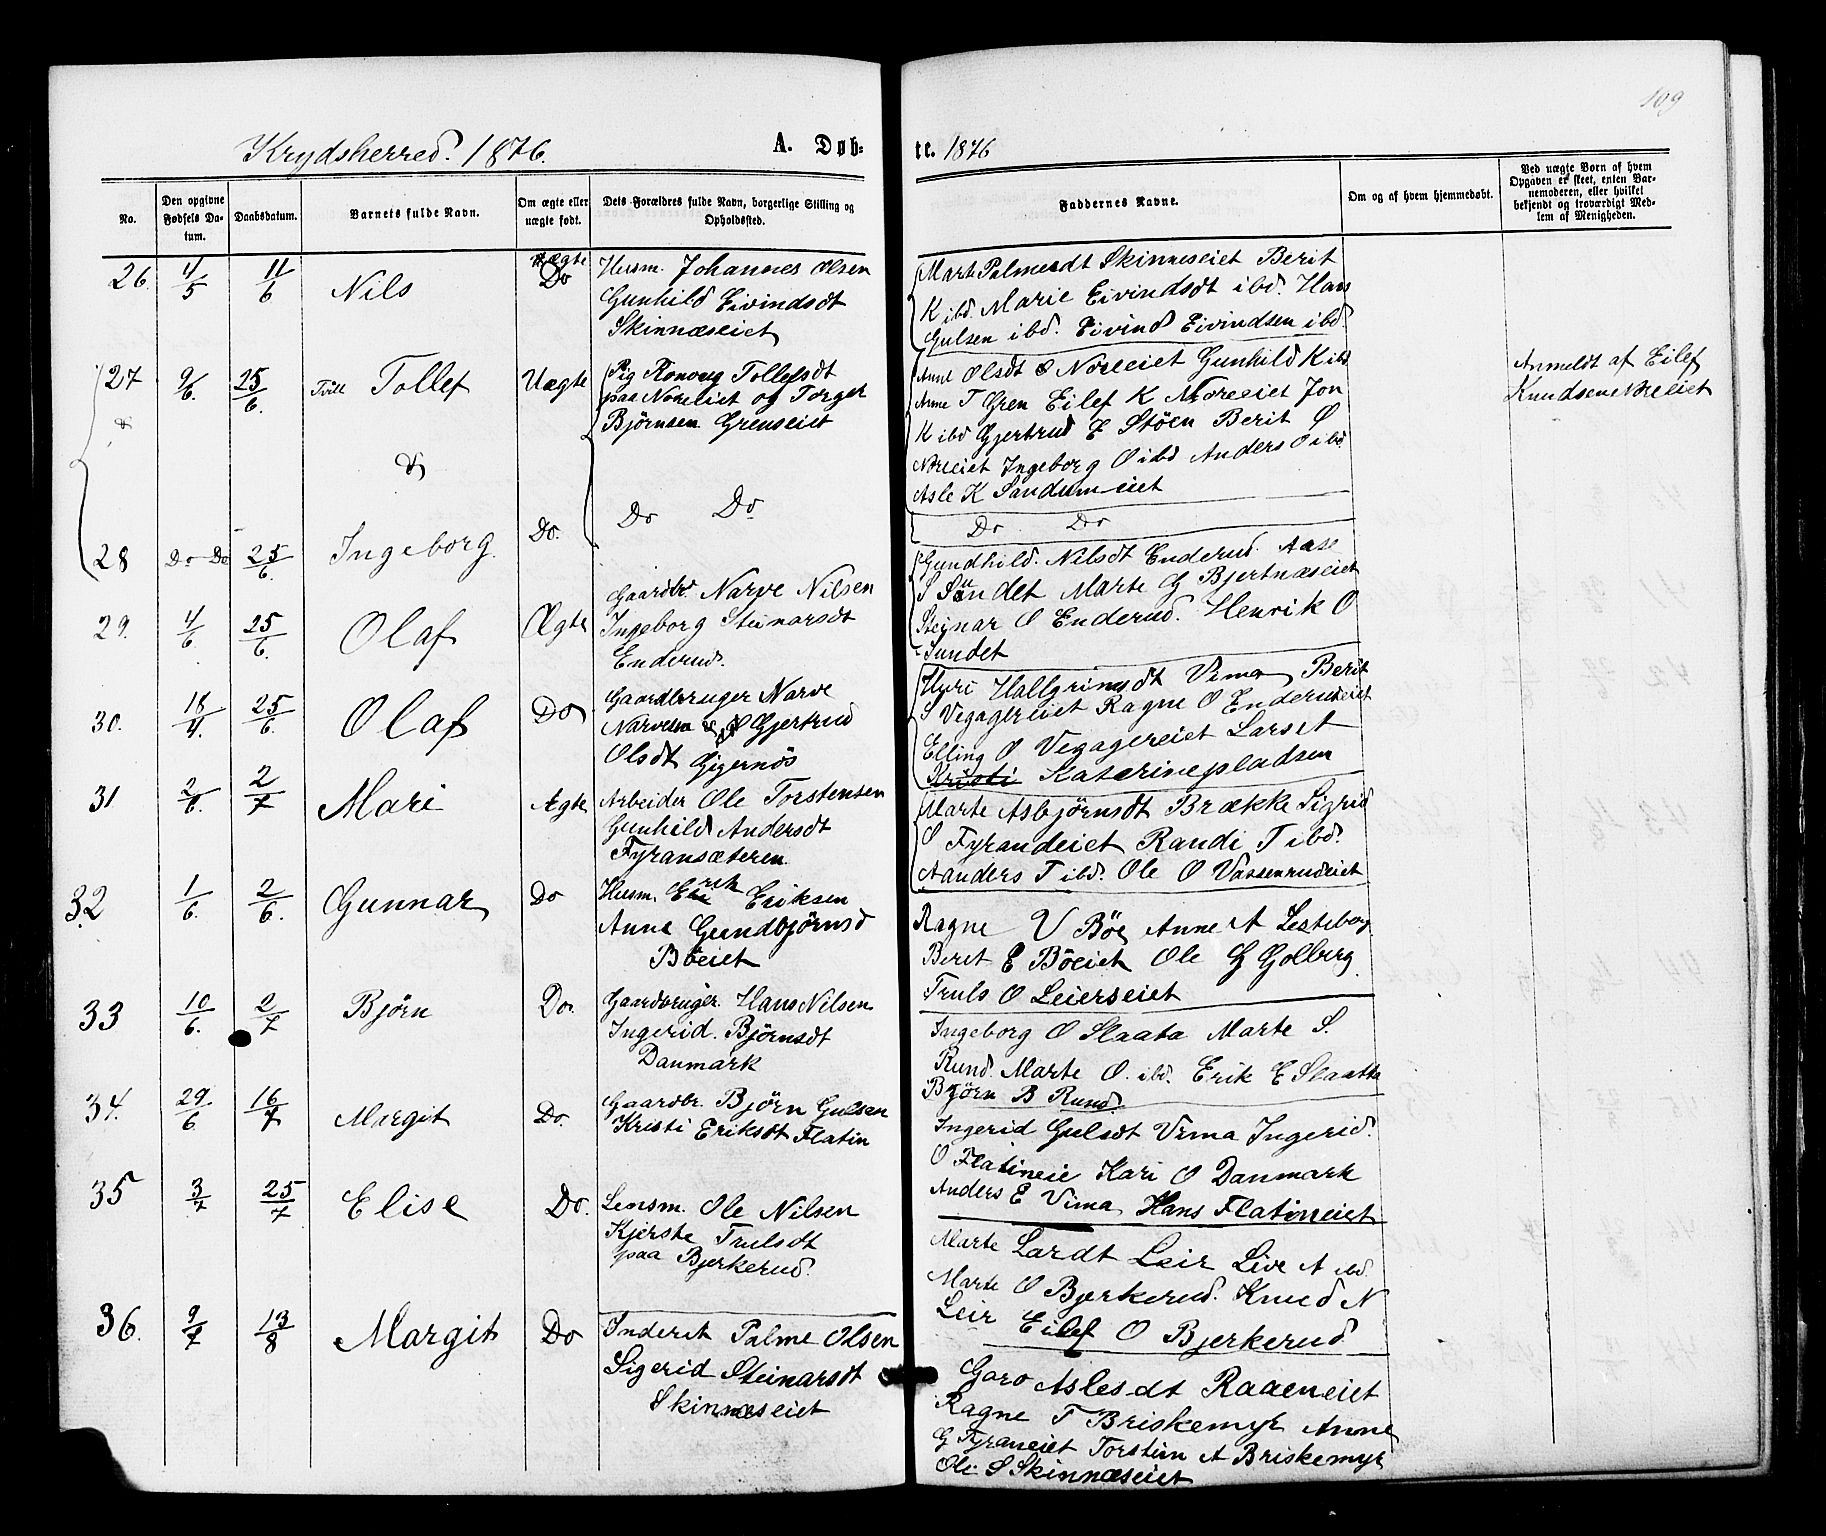 109
Krydsherred. 1876.
A. Døb-
te. 1876
No.
Den opgivne
Fødsels Da-
tum.
Daabsdatum.
Barnets fulde Navn.
Om ægte eller
uægte født.
Dets Forældres fulde Navn, borgerlige Stilling og
Opholdssted.
Faddernes Navne.
Om og af hvem hjemmedøbt.
Ved uægte Børn af hvem
Opgaven er skeet, enten Bar-
nemoderen, eller hvilket
bekjendt og troværdigt Med-
lem af Menigheden.
26. 4/5 11/6 Nils Ægte Do
Husm. Johannes Olsen
Gunhild Eivindsdt
Skinnæseiet
Marte Palmesdt Skinneseiet Berit
K ibd. Marie Eivindsdt ibd. Hans
Gulsen ibd. Eivind Eivindsen ibd.
27 9/6. 25/6. Tvill Tollef Uægte
Pig Ronoug Tollefsdt
paa Noreeiet og Torger
Bjørnsen Grenseiet
Anne Olsdt Noreeiet Gunhild K ibd
Anne T Gren Eilef K Noreeiet Jon
K ibd Gjertrud E Stöen Berit O
Noreeiet Ingeborg O ibd Anders O ibd
Asle K Sandumeiet
Anmeldt af Eilef
Knudsen Noreeiet
&
&
28 Do Do 25/6. Ingeborg. Do.
Do Do
Do Do
29. 4/6. 25/6. Olaf Ægte
Gaardbr. Narve Nilsen
Ingeborg Steinarsdt
Enderud.
Gundhild. Nilsdt Enderud. Aase
S Sundet Marte G Bjertnæseiet
Steinar O Enderud. Henrik O
Sundet
30. 18/4. 25/6. Olaf Do
Gaardbruger Narve
Narvesen & Gjertrud
Olsdt Gigernös
Hallgrimsdt Vema Berit
S Vegagereiet Ragne O Enderudeiet
Elling O Vegagereiet Lars
Kristi Katerinepladsen
31 2/6. 2/7 Mari Ægte
Arbeider Ole Torstensen
Gunhild Andersdt
Fyransæteren
Marte Asbjørnsdt Brække Sigrid
O Fyrandeiet Randi T ibd.
Aanders T ibd. Ole O Vassenrudeiet
32. 1/6. 2/6. Gunnar Do
Husm. Erik Eriksen
Anne Gundbjørnsd
Böeiet
Ragne V Böe Anne A Lesteberg
Berit E Böeiet Ole G Golberg
Truls O Leierseiet
33 10/6. 2/7 Bjørn Do.
Gaardbruger. Hans Nilsen
Ingerid. Bjørnsdt
Danmark
Ingeborg O Slaata Marte S.
Rund. Marte O. ibd. Erik E Slaatta
Bjørn B Rund.
34. 29/6 16/7 Margit Do.
Gaardbr. Bjørn Gulsen
Kristi Eriksdt Flatin
Ingerid Gulsdt Vema Ingerid.
O Flatineie Kari O Danmark
Anders E Vema Hans Flatineiet
35 3/7 25/7 Elise Do.
Lensm. Ole Nilsen
Kjerste Trulsdt
paa Bjerkerud.
Marte Larsdt Leir Live A ibd
Marte O Bjerkerud. Knud N
Leir Eilef O Bjerkerud
36. 9/7 13/8 Margit Do
Inderst Palme Olsen
Sigerid Steinarsdt
Skinnæseiet
Goro Aslesdt Raaeneiet
Ragne T Briskemyr Anne
G Fyraneiet Torstein A Briskemyr
Ole S Skinnæseiet